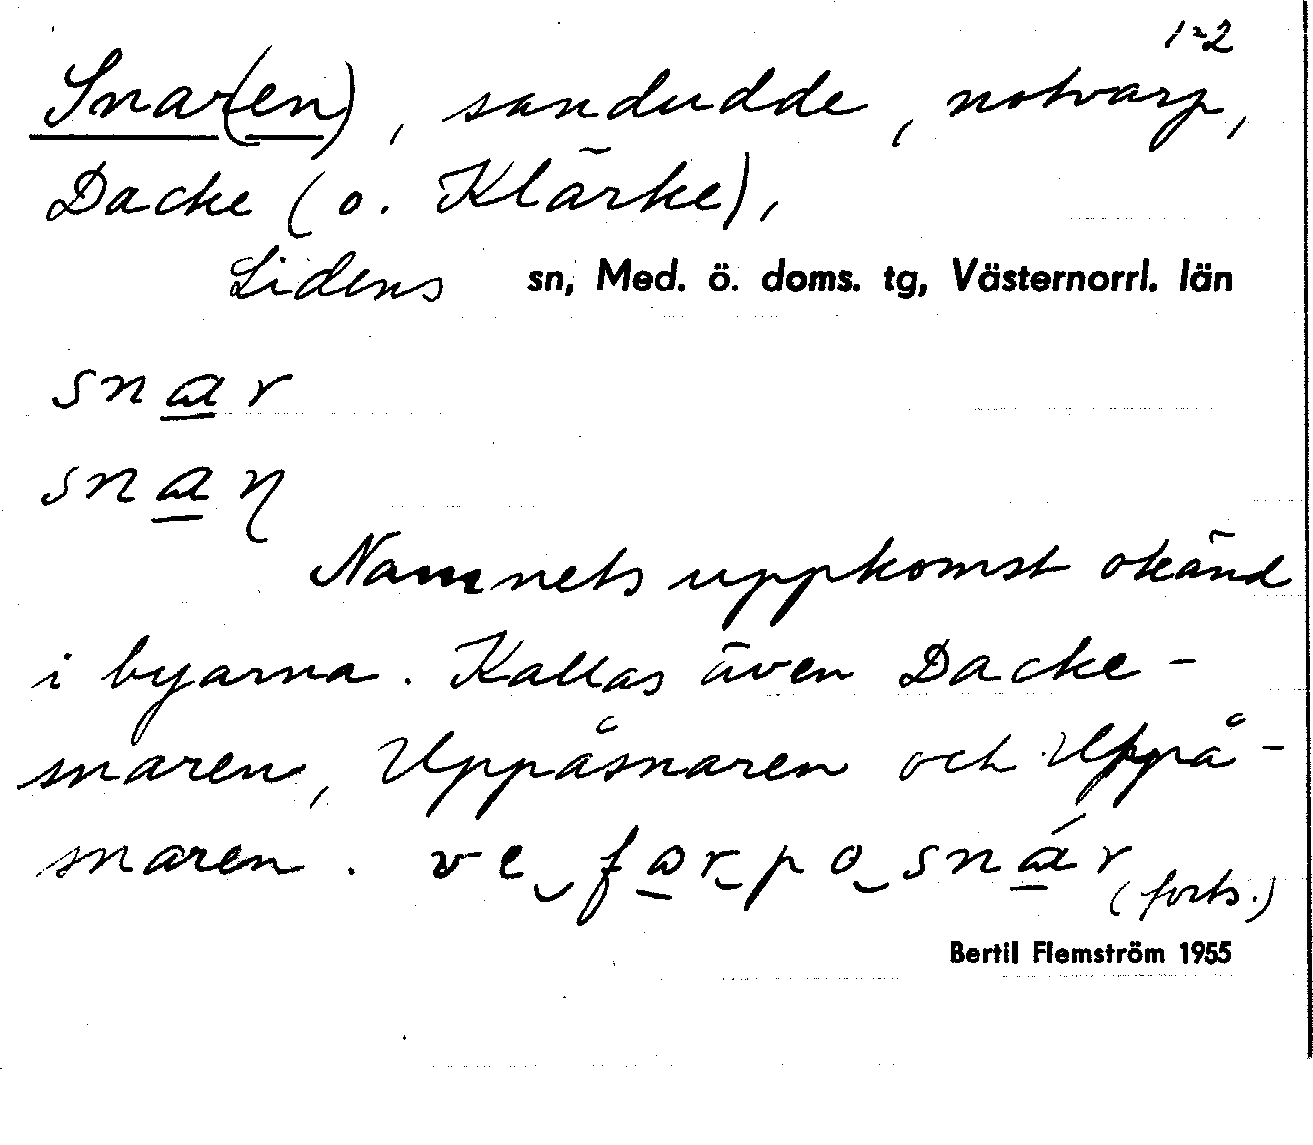 1-2
Snar(en), sandudde, notvarp,
Dacke (o. Klärke),
Lidens sn, Med. ö. doms. tg, Västernorrl. län
snar
snaɳ
Namnets uppkomst okänd
i byarna. Kallas även Dacke-
snaren, Uppåsnaren och Uppå-
snaren. ve‿far‿po‿snár
(forts.)
Bertil Flemström 1955